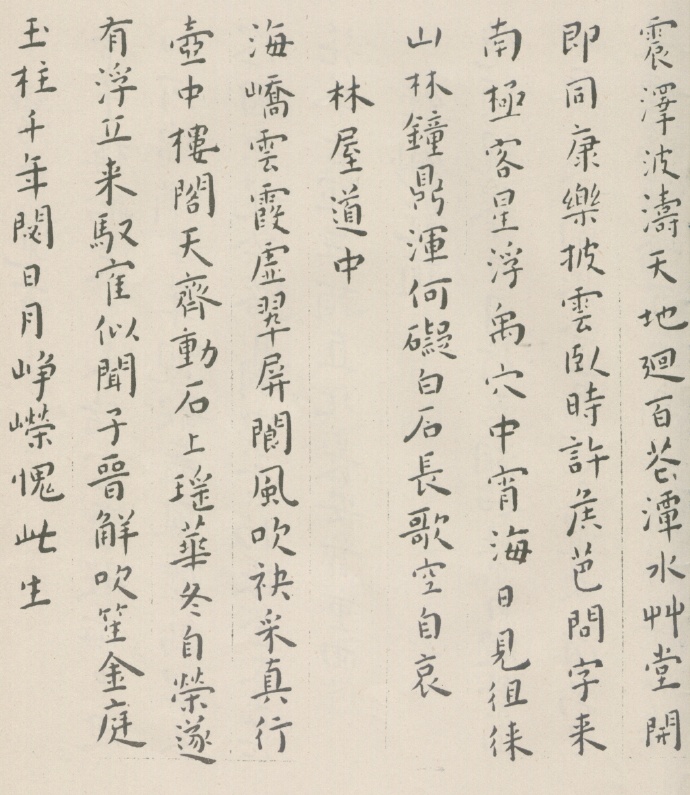 震澤波濤天地廻百花潭水艸堂開
即同康樂披雲臥時許矦芭問字来
南極客星浮禹穴中宵海日見徂徠
山林鐘鼎渾何礙白石長歌空自哀
林屋道中
海嶠雲霞虛翠屏閬風吹袂采真行
壺中樓閣天齊動石上瑤華冬自榮遂
有浮丘来馭寉似聞子晉解吹笙金庭
玉柱千年閟日月崢嶸愧此生